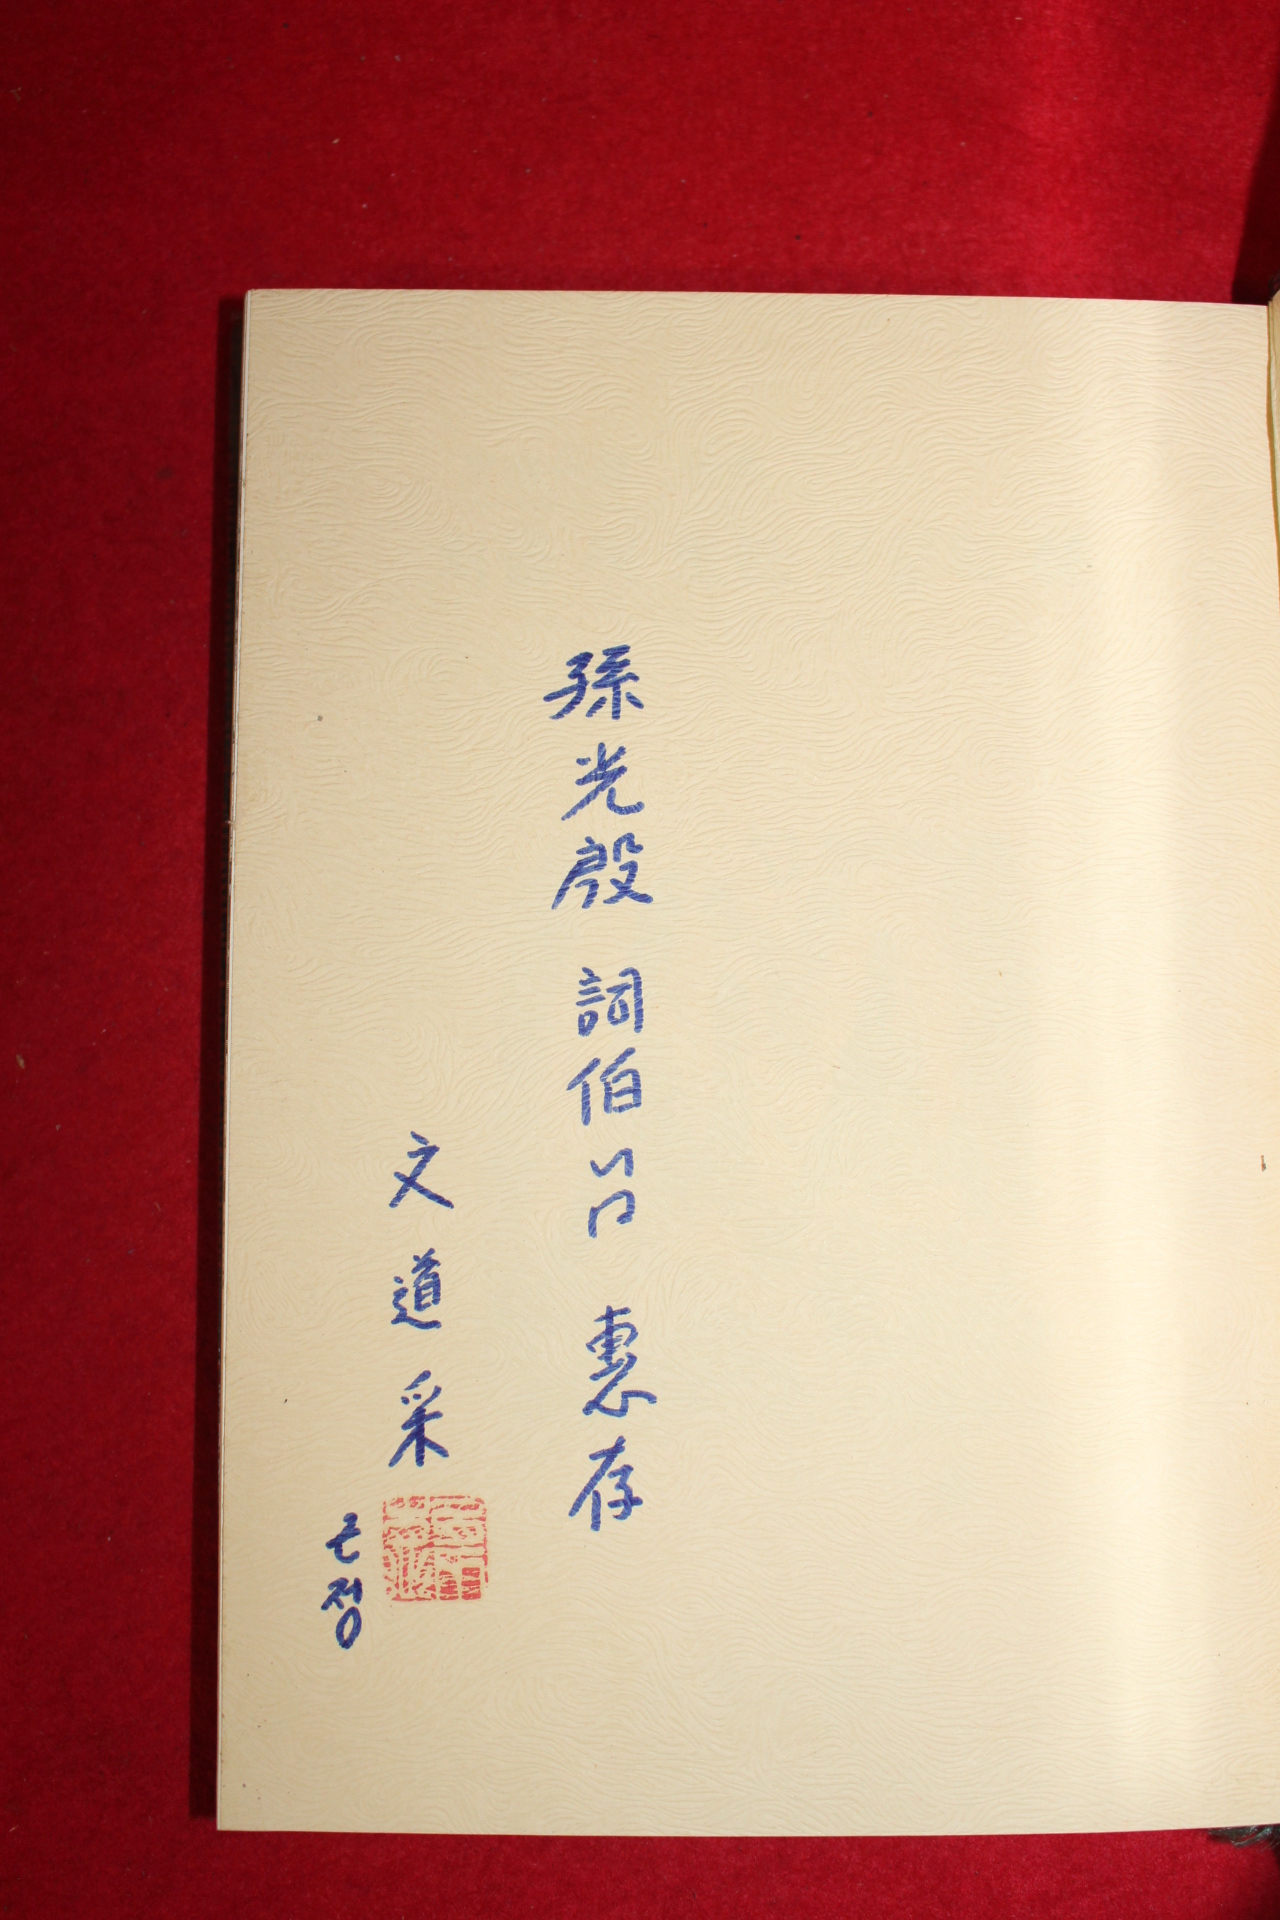 孫光殷 詞伯 惠存
文道采
근정